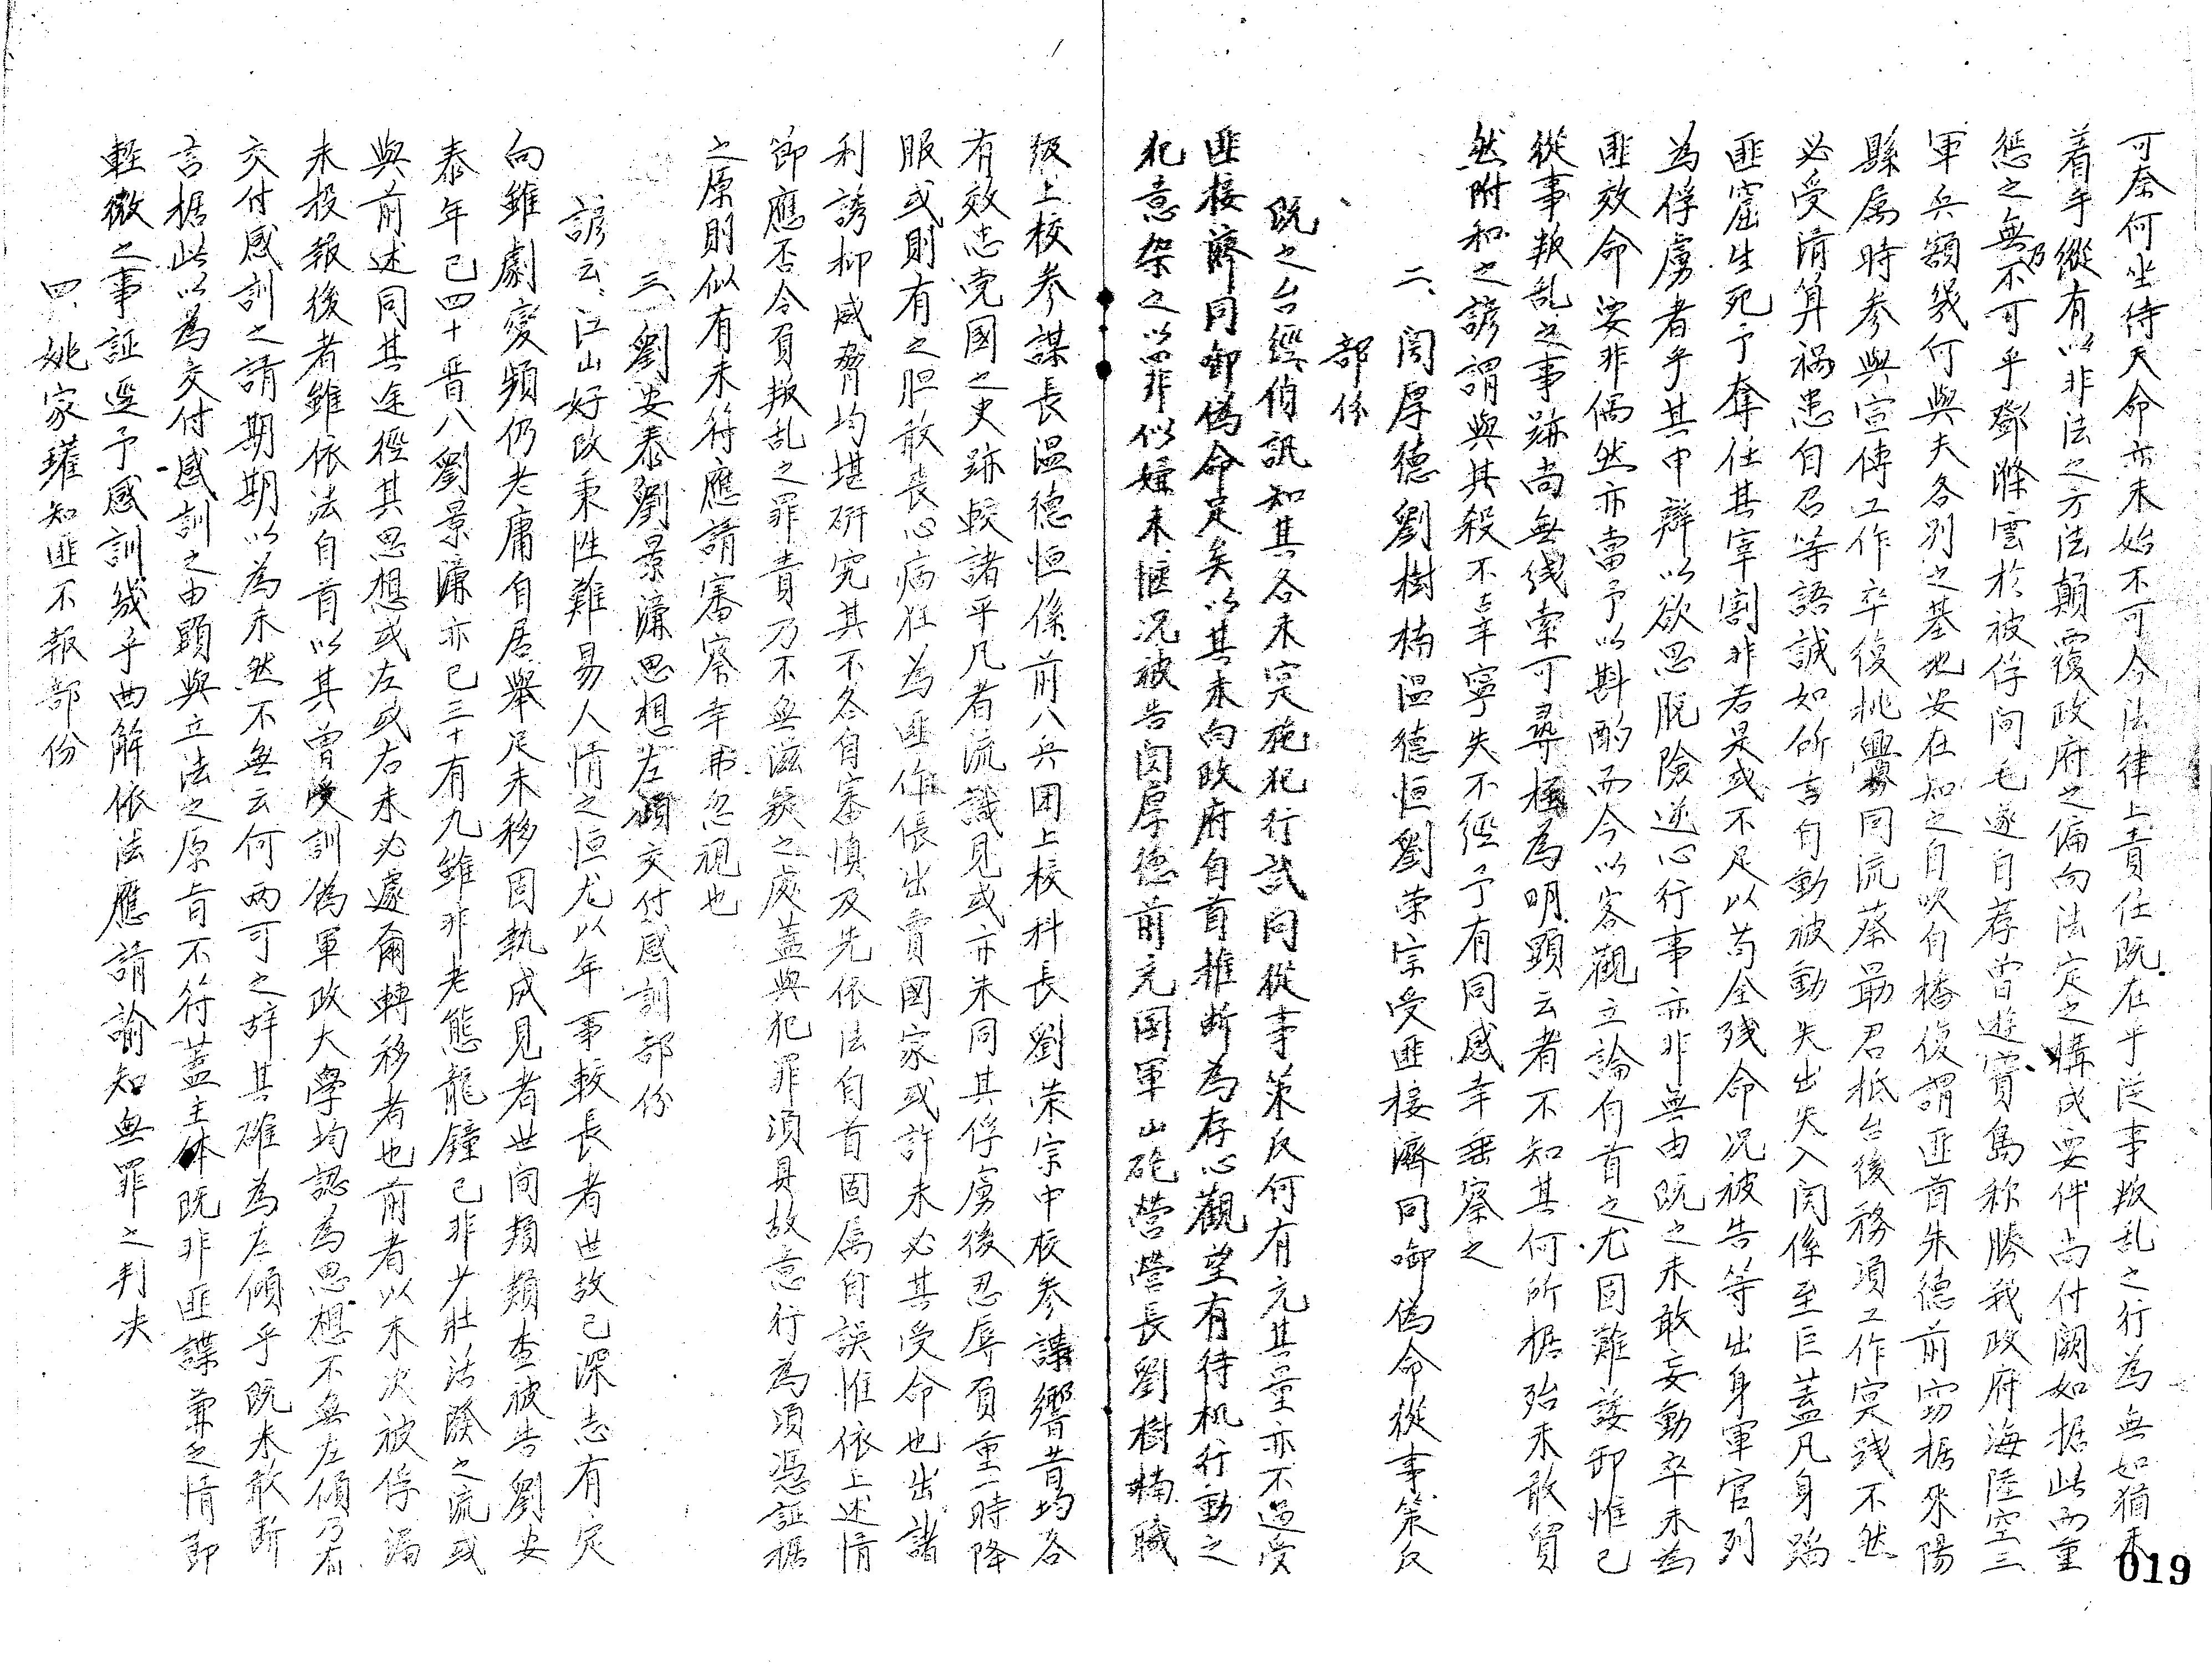 可奈何坐待天命亦未始不可今法律上責任既在乎從事叛乱之行為無如猶未
着手縱有以非法之方法顛覆政府之偏向法定之構成要件尚付闕如据此而重
懲之無乃不可乎鄧滌雲於被俘间毛遂自荐曾遊寶島称勝我政府海陸空三
軍兵額幾何與夫各別之基地安在知之自吹自擂復謂匪首朱德前窃据耒陽
縣属時参與宣傳工作卒復挑釁同流蔡最君抵台後務須工作实践不然
必受清算祸患自召等語誠如所言自動被動失出失入関係至巨蓋凡身蹈
匪窟生死予奪任其宰割非若是或不足以苟全残命况被告等出身軍官列
為俘虜者乎其申辯以欲思脱險逆心行事亦非無由既之未敢妄動卒未為
匪效命要非偶然亦當予以斟酌而今以客觀立論自首之尤固難諉卸惟已
從事叛乱之事跡尚無线索可尋極為明顕云者不知其何所据殆未敢貿
然附和之諺謂與其殺不辜寧失不經予有同感幸垂察之
二、闵厚德劉樹楠温德恒劉荣宗受匪接濟同啣偽命從事策反
部份
既之台經偵訊知其各未实施犯行試问從事策反何有充其量亦不过受
匪接濟同啣偽命足矣以其未向政府自首推断為存心觀望有待机行動之
犯意架之以罪非似嫌未愜况被告闵厚德前充国軍山砲營營長劉樹楠職
级上校参謀長温德恒係前八兵团上校科長劉荣宗中校参謀響昔均各
有效忠党國之史跡較諸平凡者流識見或亦未同其俘虜後忍辱負重一時降
服或則有之胆敢丧心病狂為匪作倀出賣國家或許未必其受命也出諸
利誘抑威脅均堪研究其不各自審慎及先依法自首固属自誤惟依上述情
節應否令負叛乱之罪責乃不無滋疑之處蓋與犯罪須具故意行為須憑証据
之原則似有未符應請審察幸弗忽視也
三、劉安泰劉景濂思想左傾交付感訓部份
諺云：江山好改秉性難易人情之恒尤以年事較長者世故已深志有定
向雖劇變頻仍老庸自居舉足未移固執成見者世间類類查被告劉安
泰年已四十晋八劉景濂亦已三十有九雖非老態龍鐘已非少壯活潑之流或
與前述同其途徑其思想或左或右未必遽爾轉移者也前者以未次被俘漏
未投報後者雖依法自首以其曾受訓偽軍政大學均認為思想不無左傾乃有
交付感訓之請期期以為未然不無云何兩可之辞其確為左傾乎既未敢断
言据此以為交付感訓之由顕與立法之原旨不符蓋主体既非匪諜兼乏情節
輕微之事証逕予感訓幾乎曲解依法應請諭知無罪之判决
四、姚家璀知匪不報部份
019